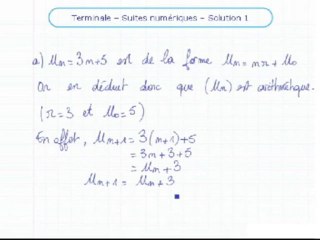 Terminale – Suites numériques – Solution 1
a) Un = 3n+5 est de la forme Un = nr + U0
On en déduit donc que (Un) est arithmétique.
(r = 3 et U0 = 5)
En effet, Un+1 = 3(n+1)+5
= 3n+3+5
= Un+3
Un+1 = Un+3